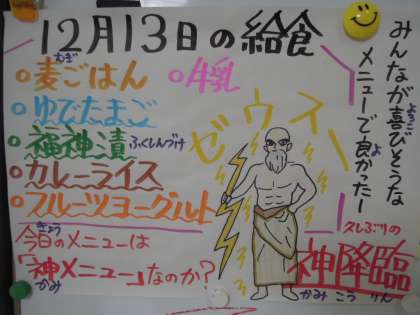 12月13日の給食
むぎ
○麦ごはん
○牛乳
○ゆでたまご
○福神漬
ふくしんづけ
○カレーライス
○フルーツヨーグルト
きょう
今日のメニューは
「神メニュー」なのか?
かみ
ゼウスー
みんなが喜びそうな
よろこ
メニューで良かったー
よ
久しぶりの
神降臨
かみ こう りん